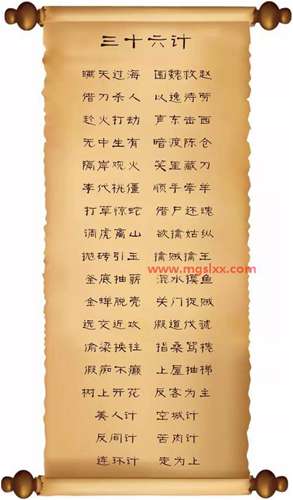 三十六计
瞒天过海 围魏救赵
借刀杀人 以逸待劳
趁火打劫 声东击西
无中生有 暗度陈仓
隔岸观火 笑里藏刀
李代桃僵 顺手牵羊
打草惊蛇 借尸还魂
调虎离山 欲擒姑纵
抛砖引玉 擒贼擒王
www.mgslxx.com
釜底抽薪 混水摸鱼
金蝉脱壳 关门捉贼
远交近攻 假道伐虢
偷梁换柱 指桑骂槐
假痴不癫 上屋抽梯
树上开花 反客为主
美人计 空城计
反间计 苦肉计
连环计 走为上